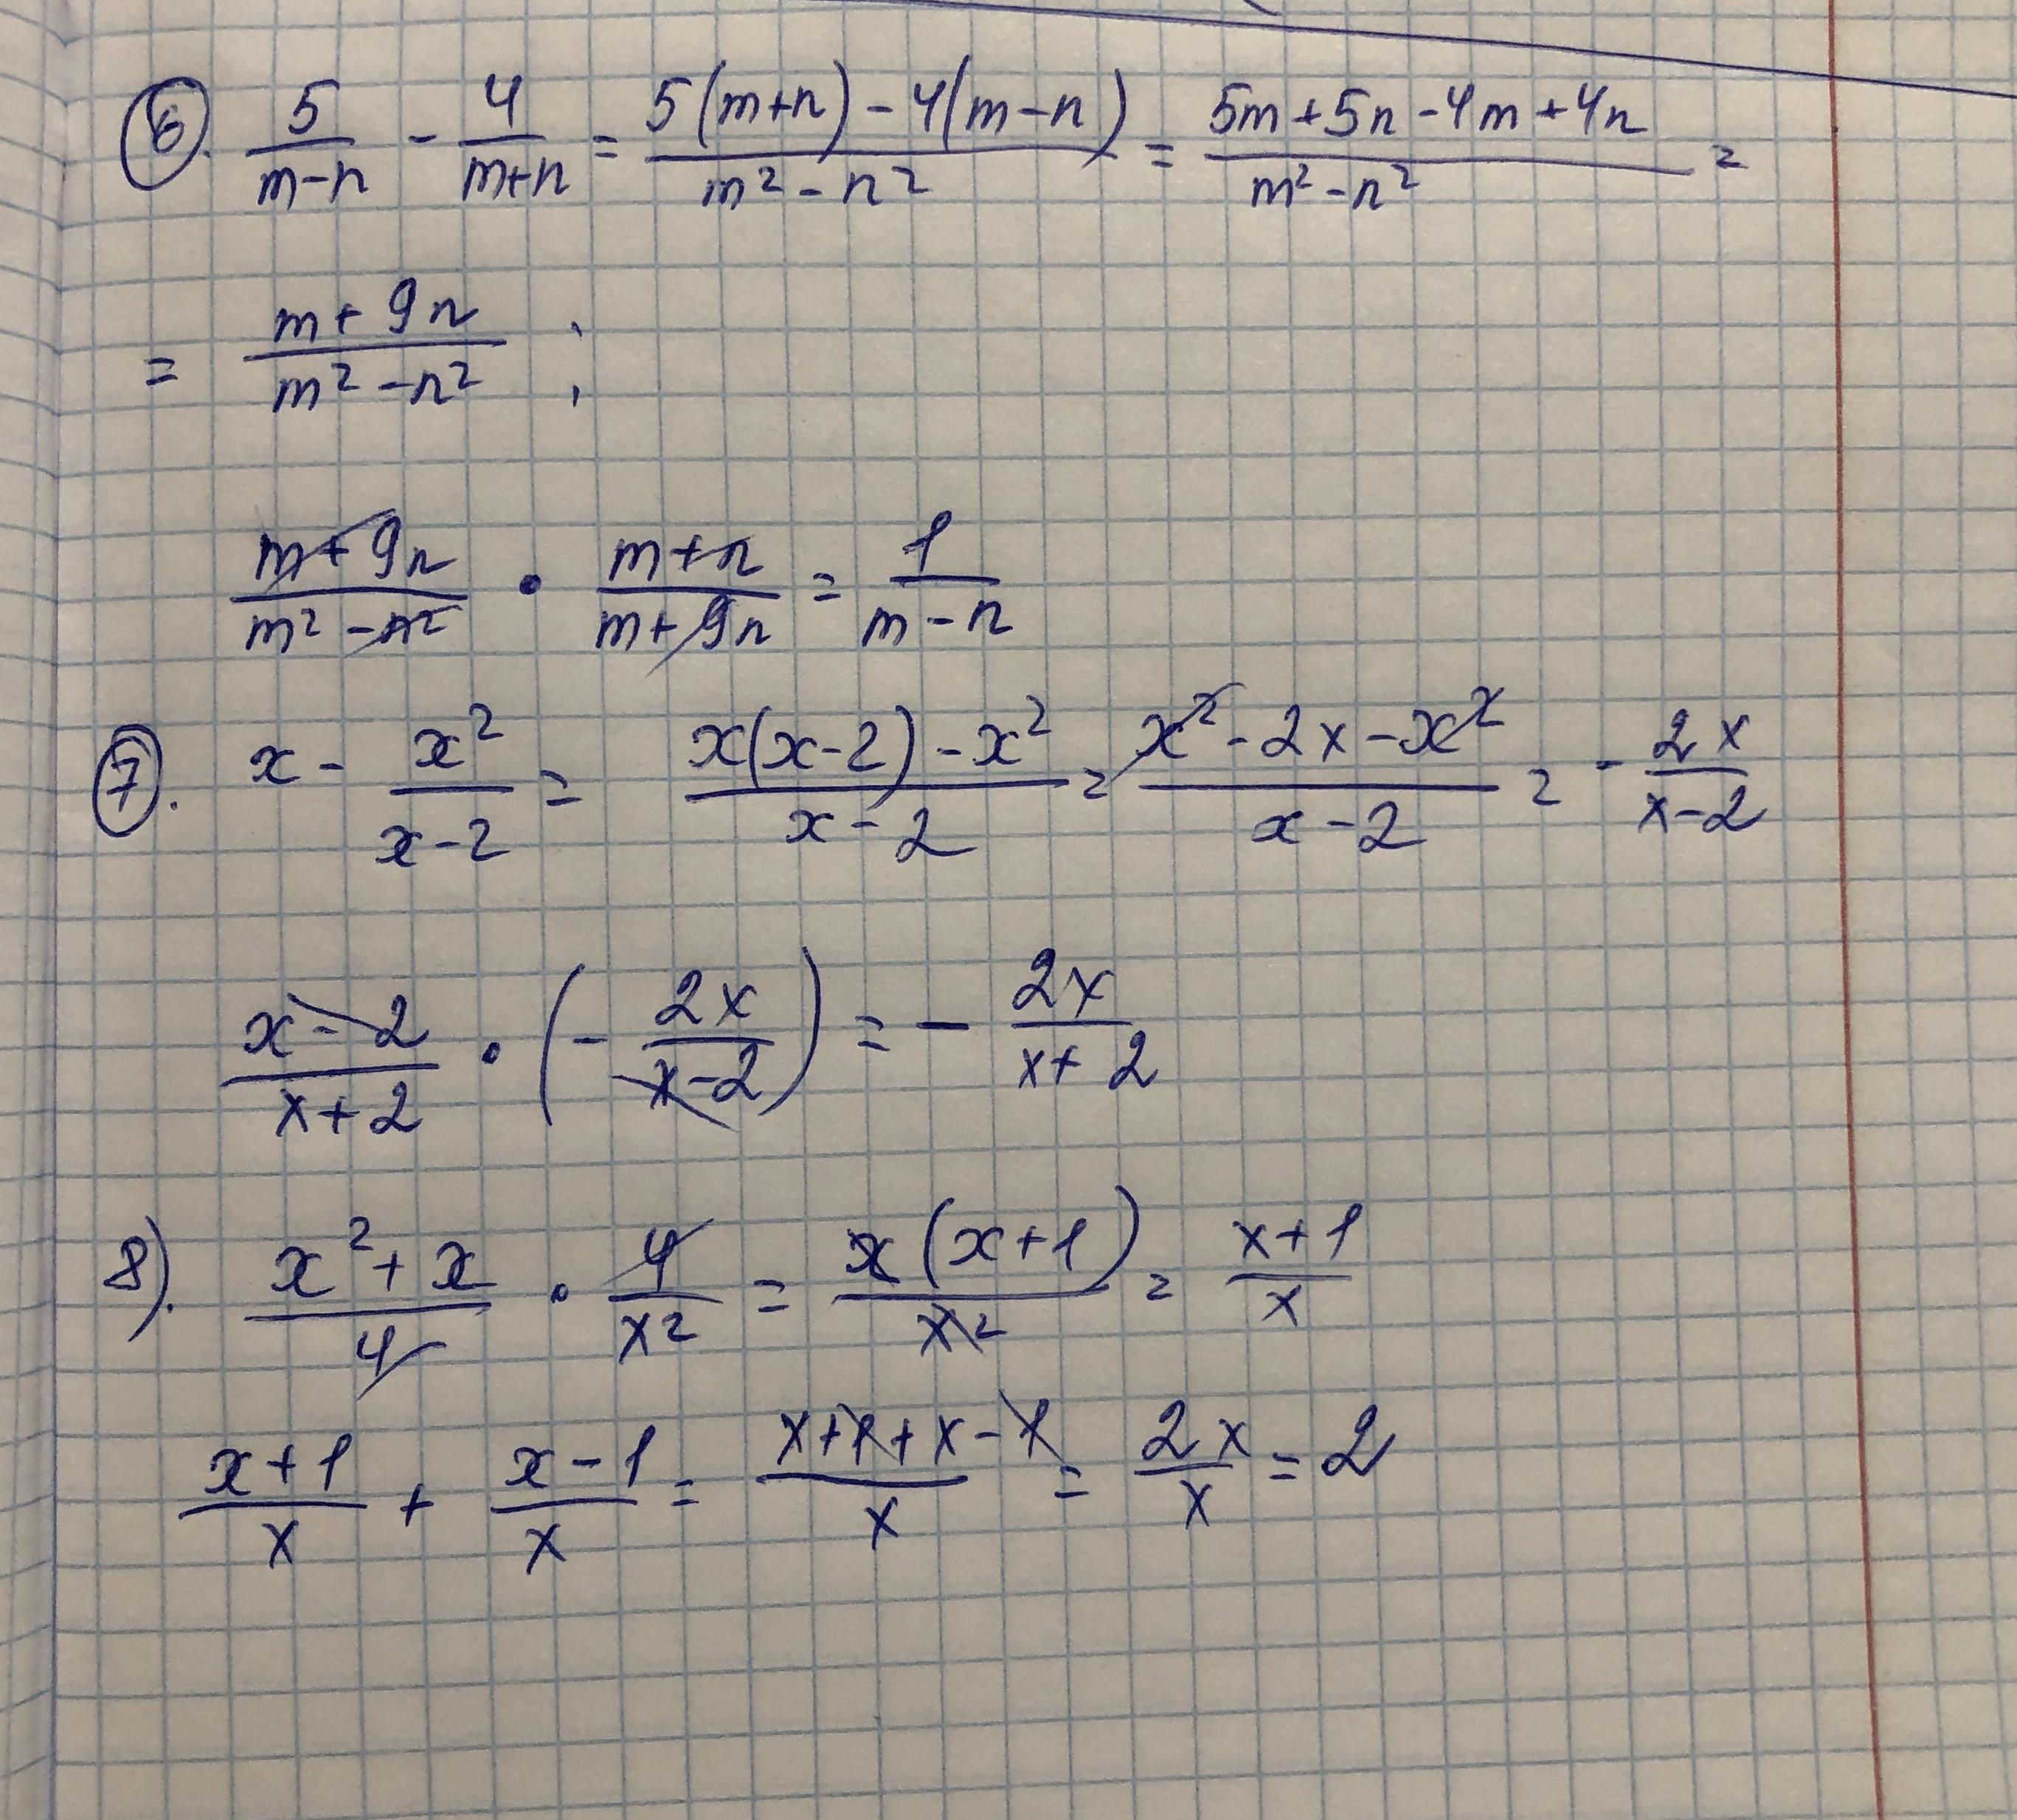 6. 5/(m-n) - 4/(m+n) = (5(m+n) - 4(m-n))/(m² - n²) = (5m+5n-4m+4n)/(m² - n²) =
= (m+9n)/(m² - n²) ;
(m+9n)/(m² - n²) · (m+n)/(m+9n) = 1/(m-n)
7. x - x²/(x-2) = (x(x-2) - x²)/(x-2) = (x² - 2x - x²)/(x-2) = - 2x/(x-2)
(x-2)/(x+2) · (- 2x/(x-2)) = - 2x/(x+2)
8). (x² + x)/4 · 4/x² = x(x+1)/x² = (x+1)/x
(x+1)/x + (x-1)/x = (x+1+x-1)/x = 2x/x = 2